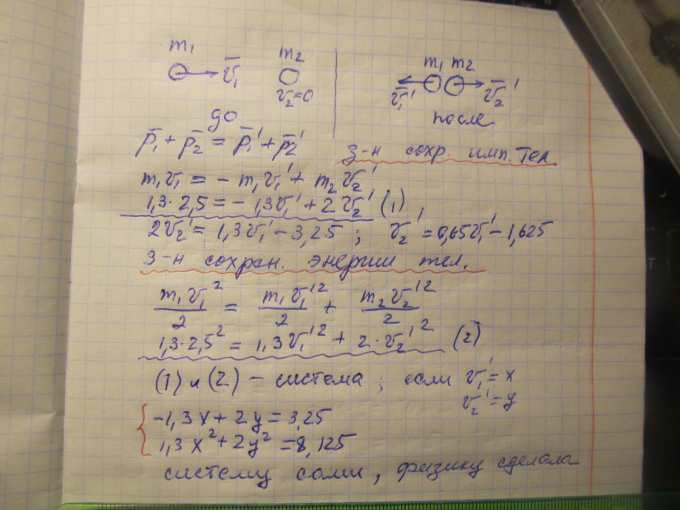 m₁ v̄₁ m₂ v₂=0
до
m₁ m₂
v̄₁' v̄₂'
после
p̄₁ + p̄₂ = p̄₁' + p̄₂' З-н сохр. имп. тел
m₁v₁ = - m₁v₁' + m₂v₂'
1,3·2,5 = - 1,3v₁' + 2v₂' (1)
2v₂' = 1,3v₁' - 3,25 ; v₂' = 0,65v₁' - 1,625
З-н сохран. энергии тел.
m₁v₁²/2 = m₁v₁'²/2 + m₂v₂'²/2
1,3·2,5² = 1,3v₁'² + 2·v₂'² (2)
(1) и (2) - система ; если v₁' = x
v₂' = y
-1,3x + 2y = 3,25
1,3x² + 2y² = 8,125
систему сами, физику сделала